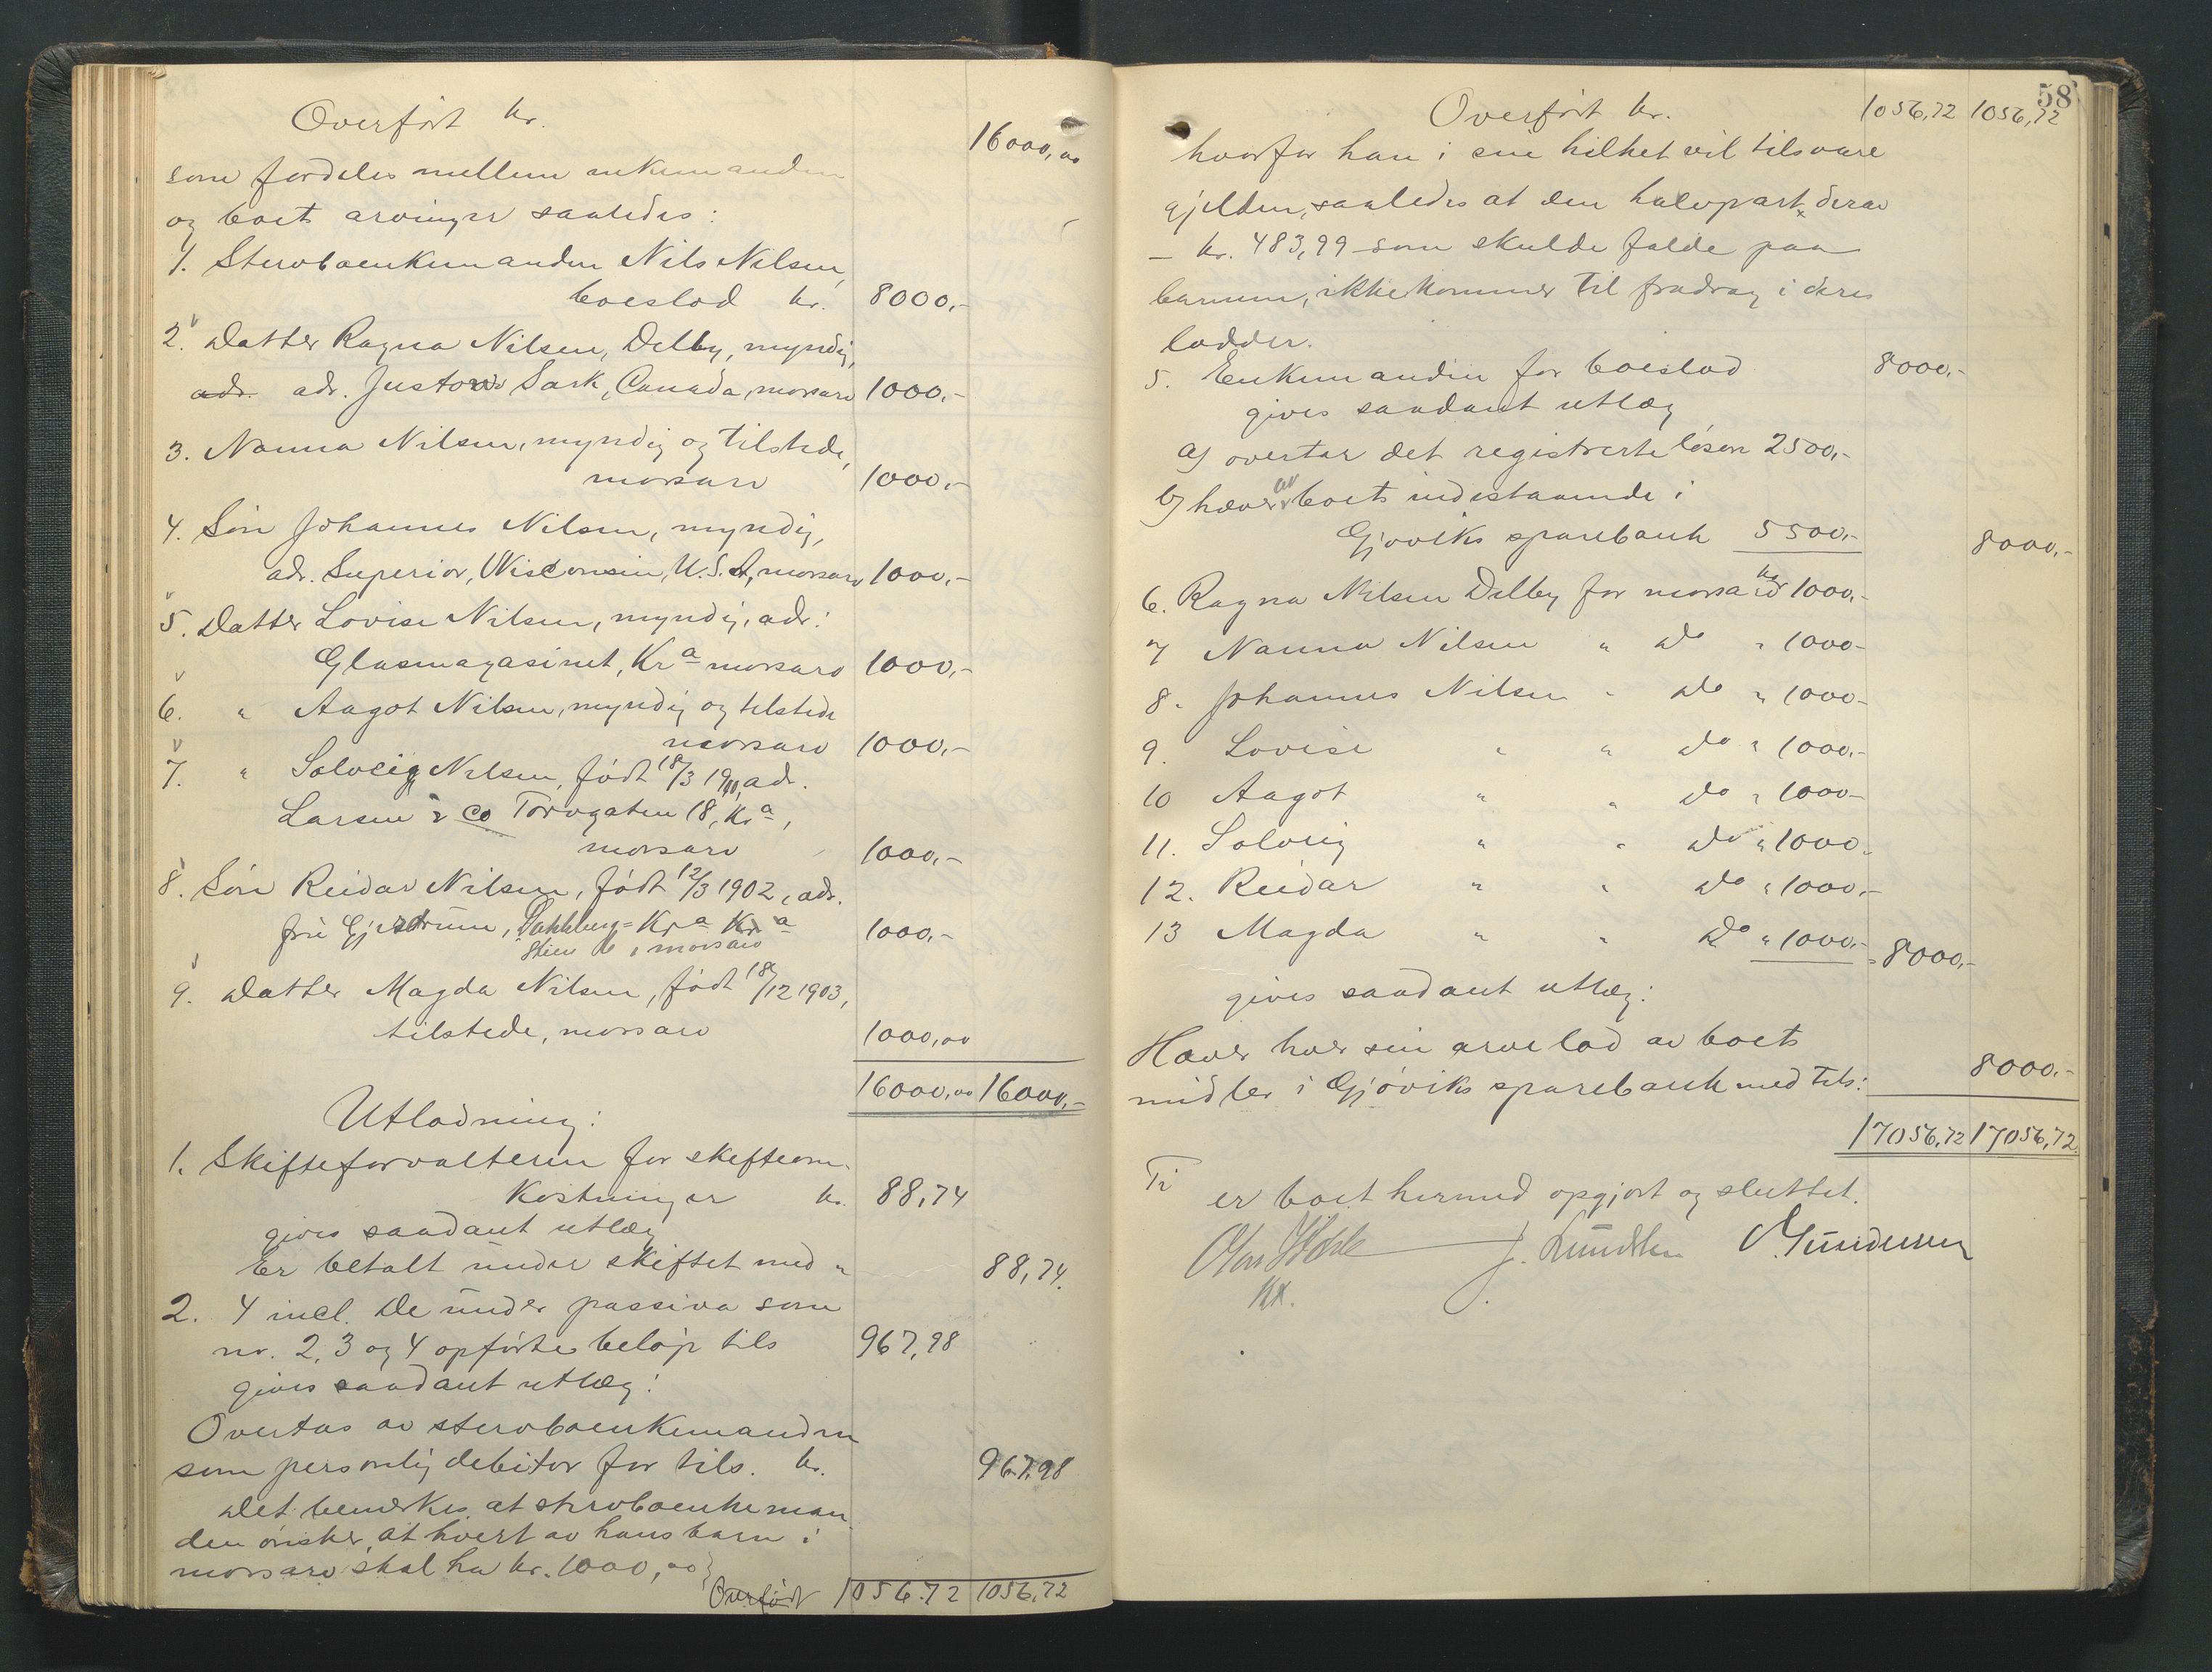 Overført kr. 16000,00
som fordeles mellem enkemanden
og boets arvinger saaledes:
1. Stervboenkemanden Nils Nilsen,
boeslod kr. 8000,-
2. Datter Ragna Nilsen, Delby, myndig,
adr. adr. Sask, Canada, morsarv 1000,-
3. Nanna Nilsen, myndig og tilstede,
morsarv 1000,-
4. Søn Johannes Nilsen, myndig,
adr. Superior, Wisconsin, U.S.A, morsarv 1000,-
5. Datter Lovise Nilsen, myndig, adr:
Glasmagasinet, Kra morsarv 1000,-
6. " Aagot Nilsen, myndig og tilstede
morsarv 1000,-
7. " Solveig Nilsen, født 18/3 1900, adr.
Larsen & Co Torvgaten 18, Kra,
morsarv 1000,-
8. Søn Reidar Nilsen, født 12/3 1902, adr.
fru Gjerdrum, Kra Kra 1000,-
morsarv
9. Datter Magda Nilsen, født 18/12 1903,
tilstede, morsarv 1000,00
16000,00 16000,-
Utlodning:
1. Skifteforvalteren for skifteom-
kostninger kr. 88,74
gives saadant utlæg
Er betalt under skiftet med " 88,74.
2. 4 incl. De under passiva som
nr. 2, 3 og 4 opførte beløp tils 967,98
gives saadant utlæg:
Overtas av stervboenkemanden
som personlig debitor for tils. kr. 967,98
Det bemerkes, at stervboenkeman-
den ønsker, at hvert av hans barn i
morsarv skal ha kr. 1000,00
Overført 1056.72 1056,72
58
Overført kr. 1056,72 1056,72
hvorfor han i sin helhet vil tilsvare
gjelden, saaledes at den halvpart derav
- kr. 483,99 - som skulde falde paa
barnene, ikke kommer til fradrag i deres
lodder.
5. Enkemanden for boeslod 8000,-
gives saadant utlæg
a) overtar det registrerte løsøre 2500,-
b) hæver av boets indestaaende i
Gjøviks sparebank 5500,- 8000,-
6. Ragna Nilsen Delby for morsarv kr 1000,-
7 Nanna Nilsen " Do " 1000-
8. Johannes Nilsen " Do " 1000-
9. Lovise " " Do " 1000,-
10 Aagot " " Do " 1000-
11. Solveig " " Do " 1000-
12. Reidar " " Do " 1000,-
13 Magda " " Do " 1000,- 8000,-
gives saadant utlæg:
Hæver hver sin arvelod av boets
midler i Gjøviks sparebank med tils: 8000,-
17056,72 17056,72
Ti
er boet hermed opgjort og sluttet.
J. Lundsten